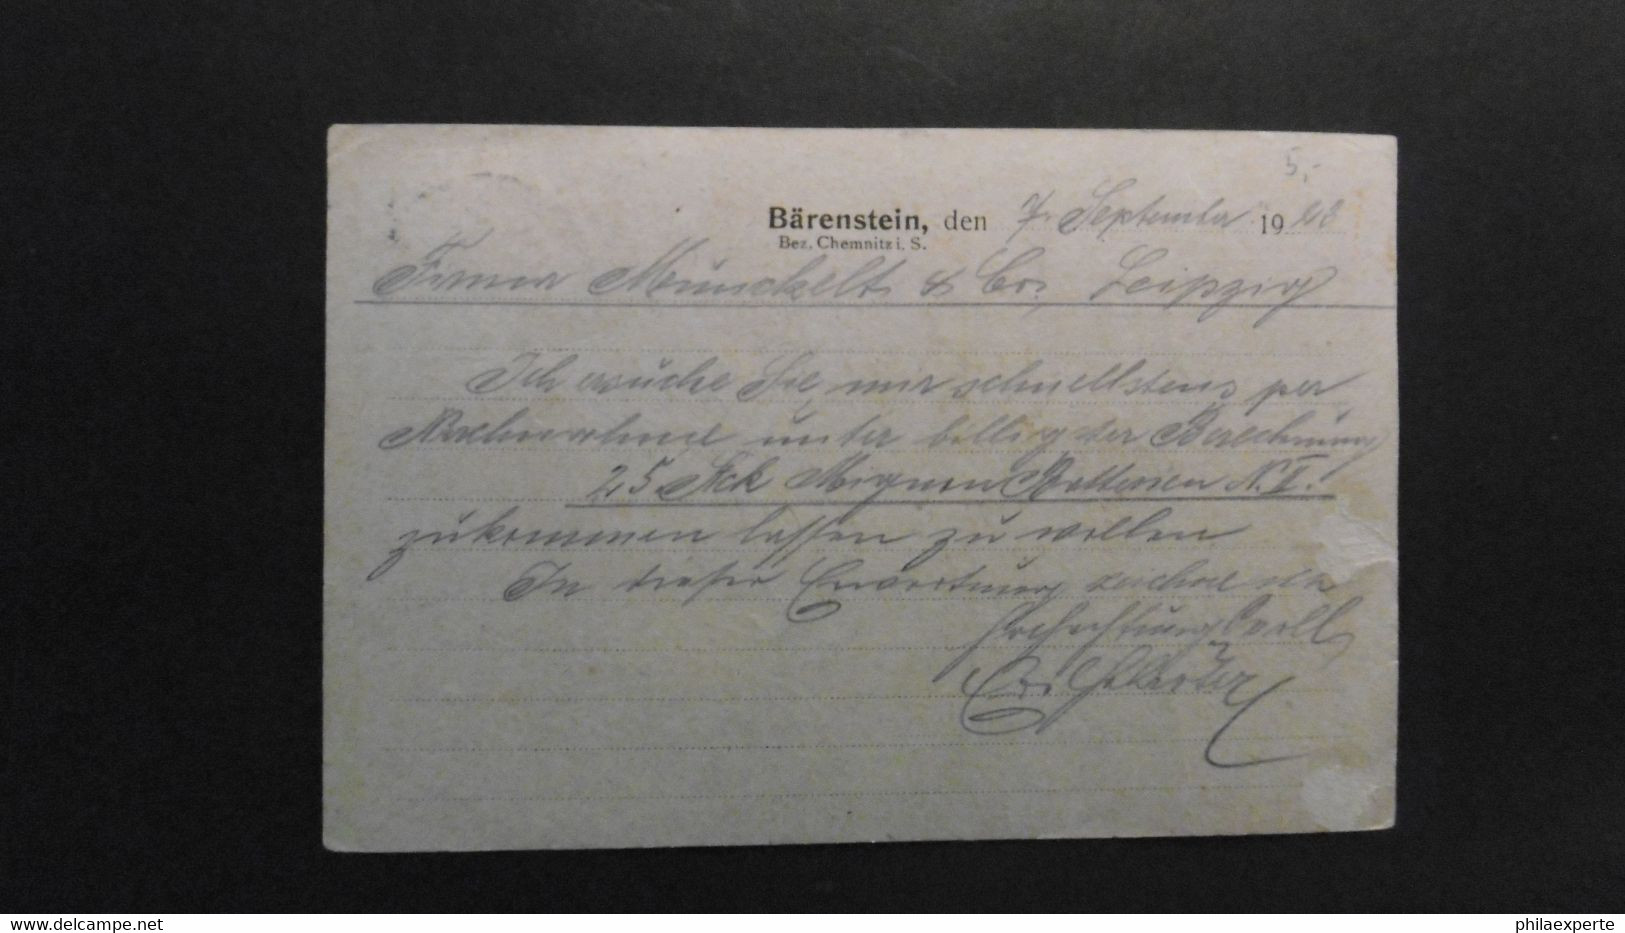 5,-
Bärenstein, den 7. September 19
Bez. Chemnitz i. S.
Firma Munckelt & Co, Leipzig
Ich ersuche Sie, mir schnellstens per
Nachnahme unter billigster Berechnung
25 Stck Mignon Batterien N. II.
zukommen lassen zu wollen
In dieser Erwartung zeichne ich
Hochachtungsvoll
www.delcampe.net
philaexperte